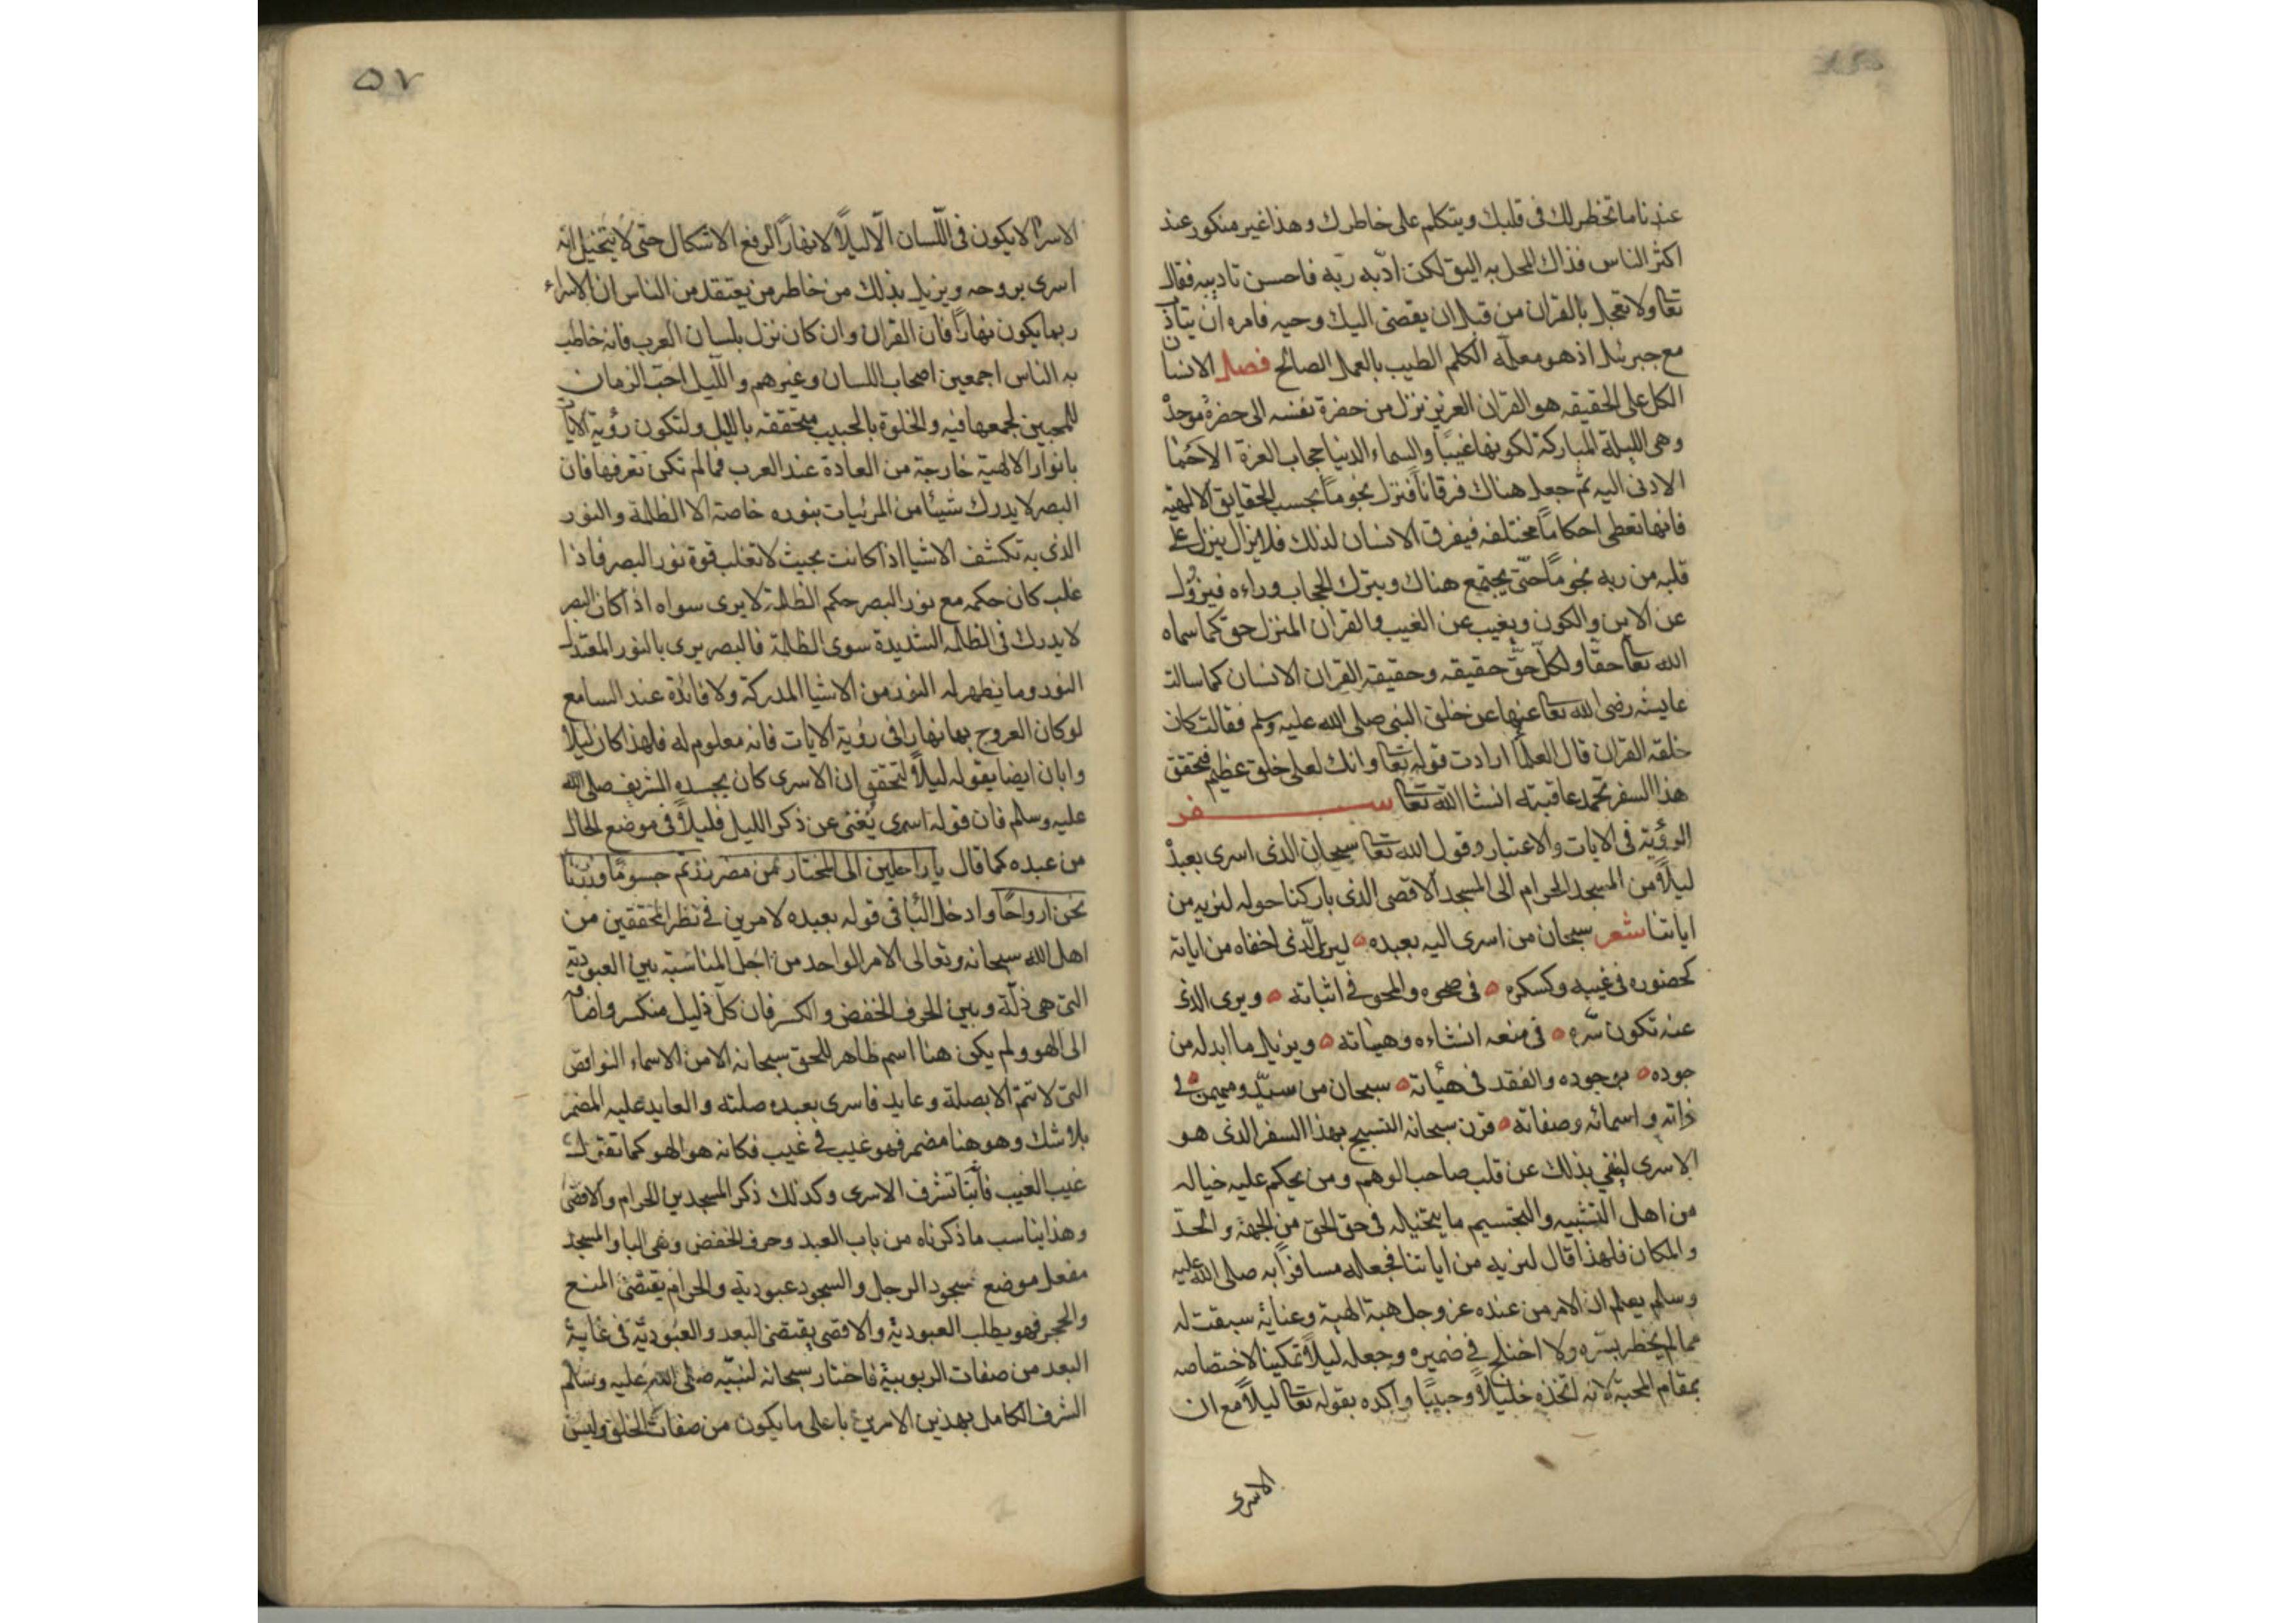 عندنا ما تخطر لك فى قلبك ويتكلم على خاطرك وهذا غير منكور عند
اكثر الناس فذاك المحل به اليق لكن ادّبه ربّه فاحسن تاديبه فقال
تعا ولا تعجل بالقران من قبل ان يقضى اليك وحيه فامره ان يتادّب
مع جبرئيل اذ هو معلّمه الكلم الطيب بالعمل الصالح فصل الانسان
الكل على الحقيقه هو القران العزيز نزل من حضرة نفسه الى حضرة موجده
وهى الليلة المباركة لكونها غيبًا والسماء الدنيا حجاب العزة الاحما
الادنى اليه ثم جعل هناك فرقاناً فنزل نجوماً بحسب الحقايق الالهية
فانها تعطى احكاماً مختلفه فيفرق الانسان لذلك فلا يزال ينزل على
قلبه من ربه نجوماً حتّى يجتمع هناك ويترك الحجاب وراءه فيزول
عن الاين والكون ويغيب عن الغيب والقران المنزل حق كما سماه
الله تعا حقا ولكلّ حقّ حقيقه وحقيقة القران الانسان كما سالت
عايشه رضى الله تعا عنها عن خلق النبى صلى الله عليه وسلم فقالت كان
خلقه القران قال العلما ارادت قوله تعا وانك لعلى خلق عظيم فتحقق
هذا السفر تحمد عاقبته انشا الله تعا سفر
الرؤية فى الايات والاعتبار وقول الله تعا سبحان الذى اسرى بعبده
ليلاً من المسجد الحرام الى المسجد الاقصى الذى باركنا حوله لنريه من
اياتنا شعر سبحان من اسرى اليه بعبده ليرى الّذى اخفاه من اياته
كحضوره فى غيبه وكسكره فى صحوه والمحو فى اثباته ويرى الذى
عنه تكون سّره فى منعه انشاءه وهياته ويزيل ما ابدله من
جوده بوجوده والفقد فى هيأته سبحان من سيّد ومهيمن فى
ذاته واسمائه وصفاته قرن سبحانه التسبيح بهذا السفر الذى هو
الاسرى لينفي بذلك عن قلب صاحب الوهم ومن يحكم عليه خياله
من اهل التشبيه والتجسيم ما يتخياله فى حق الحق من الجهة والحدّ
والمكان فلهذا قال لنريه من اياتنا فجعله مسافرًا به صلى الله عليه
وسلم يعلم ان الامر من عنده عز وجل هبة الهية وعناية سبقت له
مما لم يخطر بسّره ولا اختلج فى ضميره وجعله ليلاً تمكينا لاختصاصه
بمقام المحبة لانه اتخذه خليلاً وحبيبًا واكده بقوله تعا ليلاً مع ان
الاسرى
٥٧
الاسرا لا يكون فى اللّسان الّا ليلاً لا نهاراً لرفع الاشكال حتى لا يتخيل انه
اسرى بروحه ويزيل بذلك من خاطر من يعتقد من الناس ان الاسراء
ربما يكون نهاراً فان القران وان كان نزل بلسان العرب فانه خاطب
به الناس اجمعين اصحاب اللسان وغيرهم والليل احبّ الزمان
للمحبين لجمعها فيه والخلوة بالحبيب متحققه بالليل ولتكون رؤية الايات
بانوار الالهية خارجة من العادة عند العرب فما لم تكن تعرفها فان
البصر لا يدرك شيئا من المرئيات بنوره خاصة الا الظلمة والنور
الذى به تكشف الاشيا اذا كانت بحيث لا تغلب قوة نور البصر فاذا
غلب كان حكمه مع نور البصر حكم الظلمة لا يرى سواه اذ كان البصر
لا يدرك فى الظلمة الشديدة سوى الظلمة فالبصر يرى بالنور المعتدل
النور وما يظهر له النور من الاشيا المدركة ولا فائدة عند السامع
لو كان العروج بها نهارا فى رؤية الايات فانه معلوم له فلهذا كان ليلاً
وابان ايضا بقوله ليلاً لتحقق ان الاسرى كان بجسده الشريف صلى الله
عليه وسلم فان قوله اسرى يُغنى عن ذكر الليل فليلاً فى موضع الحال
من عبده كما قال يا راحلين الى المختار من مضر زرتم جسومًا وزرنا
نحن ارواحًا وادخل البا فى قوله بعبده لامرين فى نظر المحققين من
اهل الله سبحانه وتعالى الامر الواحد من اجل المناسبة بين العبودية
التى هى ذلّة وبين الحرف الخفض والكسر فان كلّ ذليل منكسر واضافه
الى الهو ولم يكن هنا اسم ظاهر للحق سبحانه الا من الاسماء النواقص
التى لا تتم الا بصلة وعايد فاسرى بعبده صلته والعايد عليه المضمر
بلا شك وهو هنا مضمر فهو غيب فى غيب فكانه هو الهو كما تقول
غيب الغيب فأنبا تشرف الاسرى وكذلك ذكر المسجدين الحرام والاقصى
وهذا يناسب ما ذكرناه من باب العبد وحرف الخفض وهى البا والمسجد
مفعل موضع سجود الرجل والسجود عبودية والحرام يقتضى المنع
والحجر فهو يطلب العبودية والاقصى يقتضى البعد والعبوديّة فى غاية
البعد من صفات الربوبية فاختار سبحانه لنبيّه صلى الله عليه وسلم
الشرف الكامل بهذين الامرين باعلى ما يكون من صفات الخلق وليس